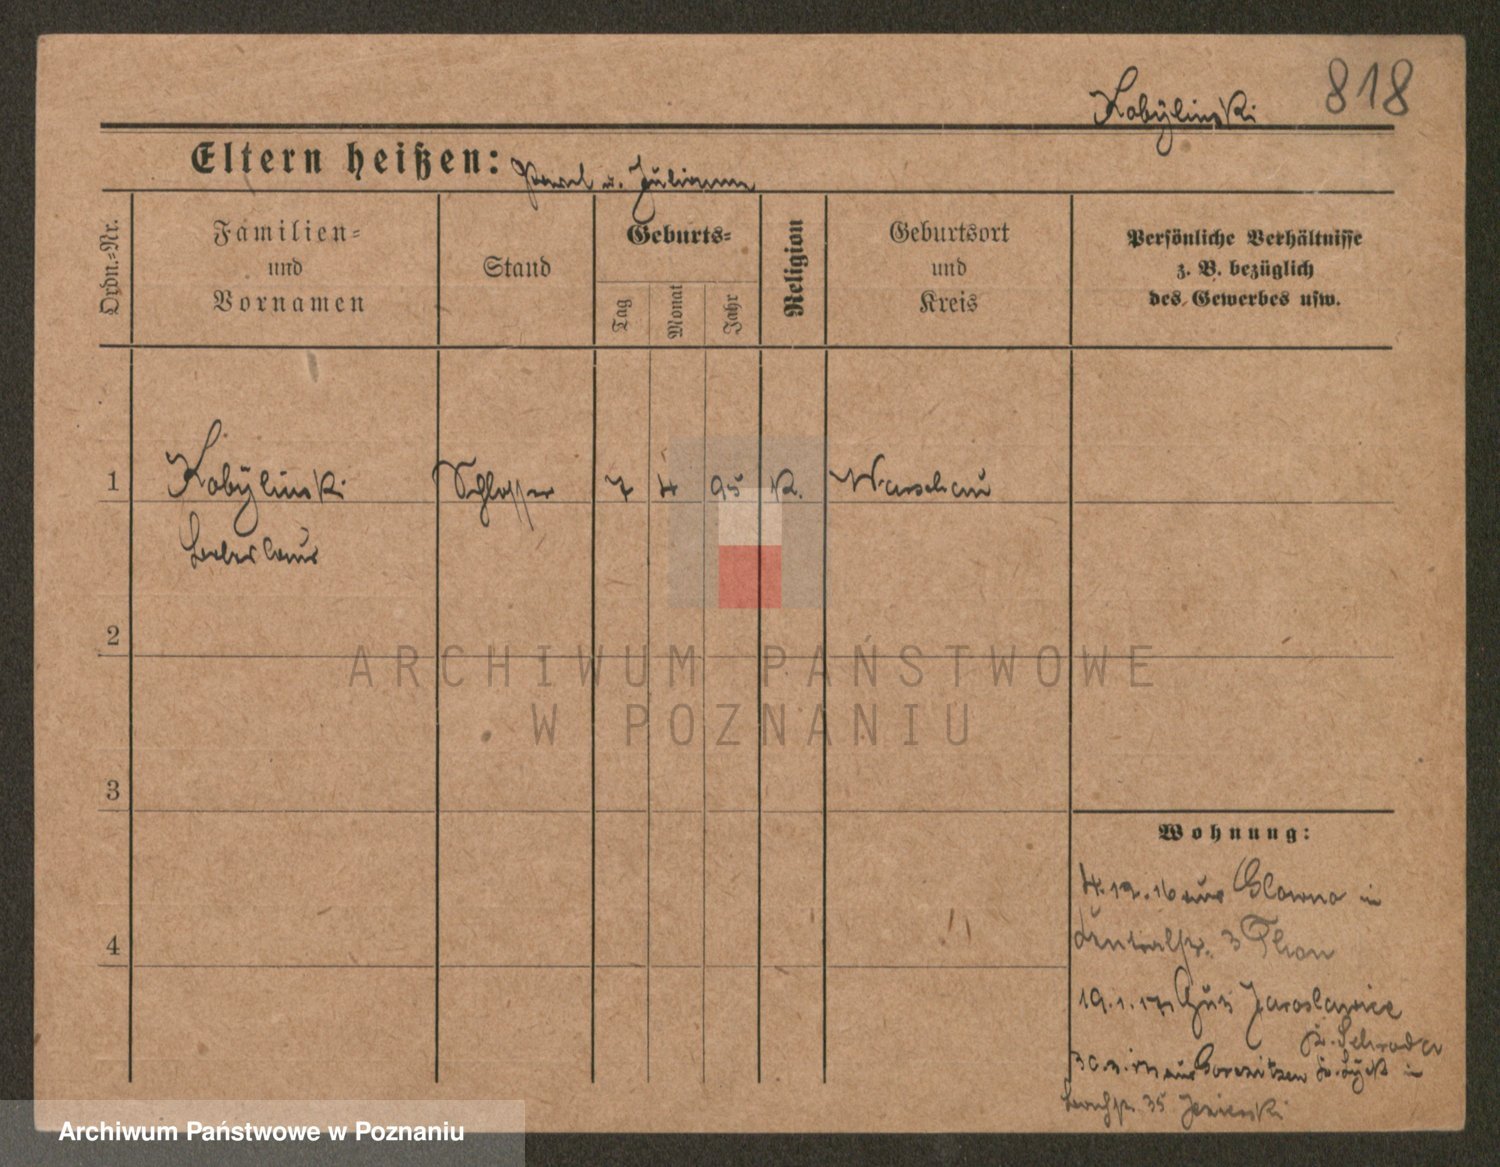 818
Kobylinski
Eltern heißen: Pawel u. Julianna
Ordn.-Nr.
Familien-
und
Vornamen
Stand
Geburts-
Tag
Monat
Jahr
Religion
Geburtsort
und
Kreis
Persönliche Verhältnisse
z. B. bezüglich
des Gewerbes usw.
1 Kobylinski Schlosser 7 4 95 K. Warschau
2
3
4
Wohnung:
4.12.16 aus Glowno in
3 Thon
19.1.17 Jaroslawice
Kr. Schroda
aus Kr. Lyck in
35 Jesierski
ARCHIWUM PAŃSTWOWE
W POZNANIU
Archiwum Państwowe w Poznaniu